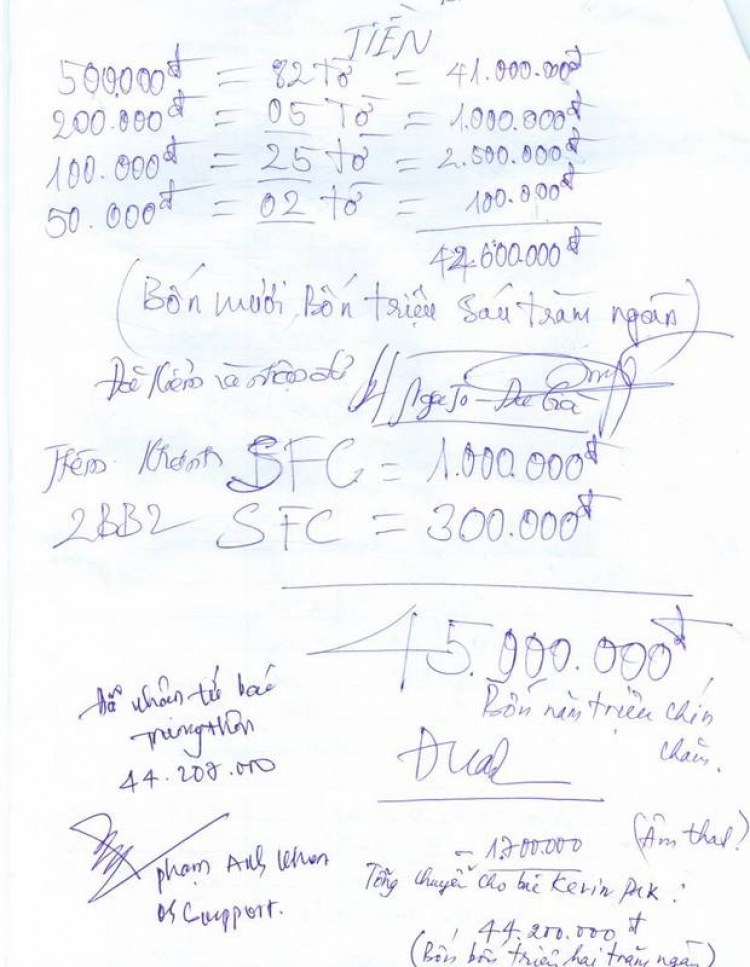 TIỀN
500.000đ = 82 Tờ = 41.000.000đ
200.000đ = 05 Tờ = 1.000.000đ
100.000đ = 25 tờ = 2.500.000đ
50.000đ = 02 tờ = 100.000đ
44.600.000đ
(Bốn mươi Bốn triệu Sáu trăm ngàn)
Đã kiểm và nhận đủ
Thêm Khánh SFC = 1.000.000đ
2BB2 SFC = 300.000đ
45.900.000đ
Bốn năm triệu chín
trăm.
Đã nhận từ bác
44.200.000
phạm Anh Khoa
OS Support.
- 1.700.000 (Âm thanh)
Tổng chuyển cho bác Kevin PAK :
44.200.000đ
(Bốn bốn triệu hai trăm ngàn)